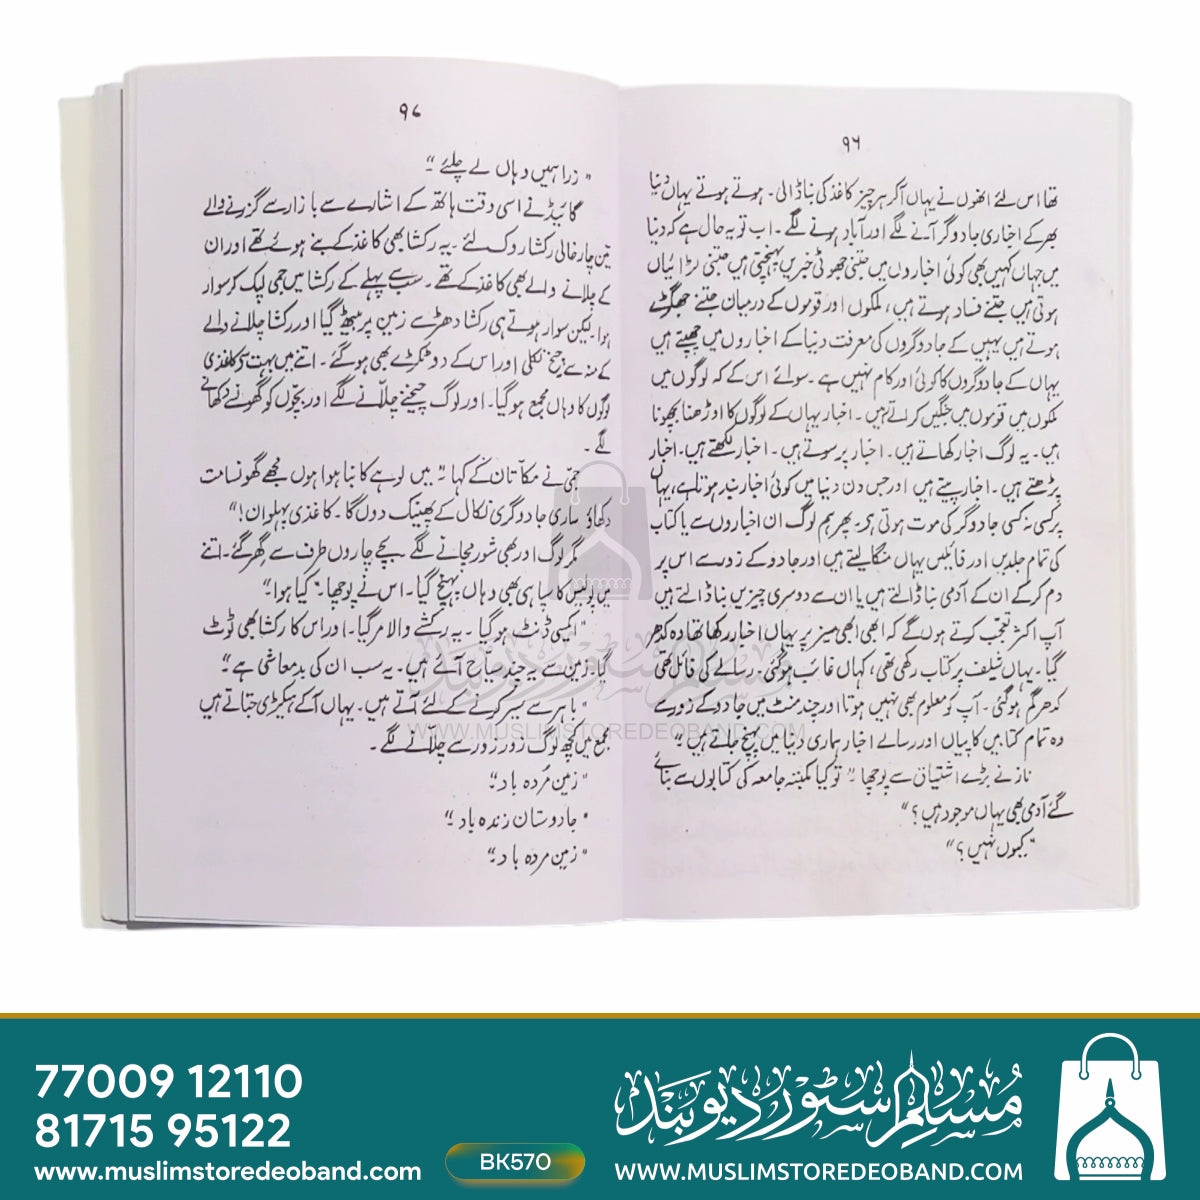 ۹۶
تھا اس لئے انھوں نے یہاں آکر ہر چیز کاغذ کی بنا ڈالی۔ ہوتے ہوتے یہاں دنیا
بھر کے اخباری جادوگر آنے لگے اور آباد ہونے لگے۔ اب تو یہ حال ہے کہ دنیا
میں جہاں کہیں بھی کوئی اخباروں میں جتنی جھوٹی خبریں پہنچتی ہیں جتنی لڑائیاں
ہوتی ہیں جتنے فساد ہوتے ہیں، ملکوں اور قوموں کے درمیان جتنے جھگڑے
ہوتے ہیں یہیں کے جادوگروں کی معرفت دنیا کے اخباروں میں چھپتے ہیں
یہاں کے جادوگروں کا کوئی اور کام نہیں ہے۔ سوائے اس کے کہ لوگوں میں
ملکوں میں قوموں میں جنگیں کراتے ہیں۔ اخبار یہاں کے لوگوں کا اوڑھنا بچھونا
ہیں۔ یہ لوگ اخبار کھاتے ہیں۔ اخبار پر سوتے ہیں۔ اخبار لکھتے ہیں۔ اخبار
پڑھتے ہیں۔ اخبار پیتے ہیں اور جس دن دنیا میں کوئی اخبار بند ہوتا ہے، یہاں
پر کسی نہ کسی جادوگر کی موت ہوتی ہے۔ پھر ہم لوگ ان اخباروں سے یا کتاب
کی تمام جلدیں اور فائلیں یہاں منگا لیتے ہیں اور جادو کے زور سے اس پر
دم کر کے ان کے آدمی بنا ڈالتے ہیں یا ان سے دوسری چیزیں بنا ڈالتے ہیں
آپ اکثر تعجب کرتے ہوں گے کہ ابھی ابھی میز پر یہاں اخبار رکھا تھا وہ کدھر
گیا۔ یہاں شلیف پر کتاب رکھی تھی، کہاں غائب ہو گئی۔ رسالے کی فائل تھی
کدھر گم ہو گئی۔ آپ کو معلوم بھی نہیں ہوتا اور چند منٹ میں جادو کے زور سے
وہ تمام کتابیں کاپیاں اور رسالے اخبار ہماری دنیا میں پہنچ جاتے ہیں"
ناز نے بڑے اشتیاق سے پوچھا۔ "تو کیا مکتبہ جامعہ کی کتابوں سے بنائے
گئے آدمی بھی یہاں موجود ہیں؟"
"کیوں نہیں؟"
۹۷
"ذرا ہمیں وہاں لے چلئے۔"
گائیڈ نے اسی وقت ہاتھ کے اشارے سے بازار سے گزرنے والے
تین چار خالی رکشا روک لئے۔ یہ رکشا بھی کاغذ کے بنے ہوئے تھے اور ان
کے چلانے والے بھی کاغذ کے تھے۔ سب سے پہلے کے رکشا میں جمی لپک کر سوار
ہوا۔ لیکن سوار ہوتے ہی رکشا دھڑ سے زمین پر بیٹھ گیا اور رکشا چلانے والے
کے منہ سے چیخ نکلی اور اس کے دو ٹکڑے بھی ہو گئے۔ اتنے میں بہت سے کاغذی
لوگوں کا وہاں مجمع ہو گیا۔ اور لوگ چیخنے چلّانے لگے اور بچّوں کو گھونسے دکھانے
لگے۔
جمّی نے مکّا تان کے کہا۔ "میں لوہے کا بنا ہوا ہوں مجھے گھونسا مت
دکھاؤ ساری جادوگری نکال کے پھینک دوں گا۔ کاغذی پہلوان!"
مگر لوگ اور بھی شور مچانے لگے بچے چاروں طرف سے گھر گئے۔ اتنے
میں پولیس کا سپاہی بھی وہاں پہنچ گیا۔ اس نے پوچھا۔ "کیا ہوا"
"ایکسی ڈنٹ ہو گیا۔ یہ رکشے والا مر گیا۔ اور اس کا رکشا بھی ٹوٹ
گیا۔ زمین سے یہ چند سیّاح آئے ہیں۔ یہ سب ان کی بدمعاشی ہے"
"باہر سے سیر کرنے کے لئے آتے ہیں۔ یہاں آکے ہیکڑی جتاتے ہیں
مجمع میں کچھ لوگ زور زور سے چلّانے لگے۔
"زمین مُردہ باد۔"
"جادوستان زندہ باد۔"
"زمین مردہ باد۔"
مسلم سٹور دیوبند
WWW.MUSLIMSTOREDEOBAND.COM
77009 12110
81715 95122
www.muslimstoredeoband.com
BK570
مسلم سٹور دیوبند
WWW.MUSLIMSTOREDEOBAND.COM